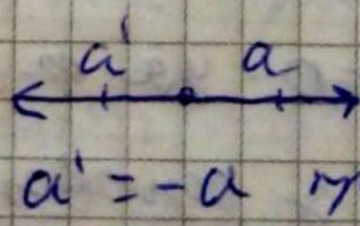 a' a
a' = -a